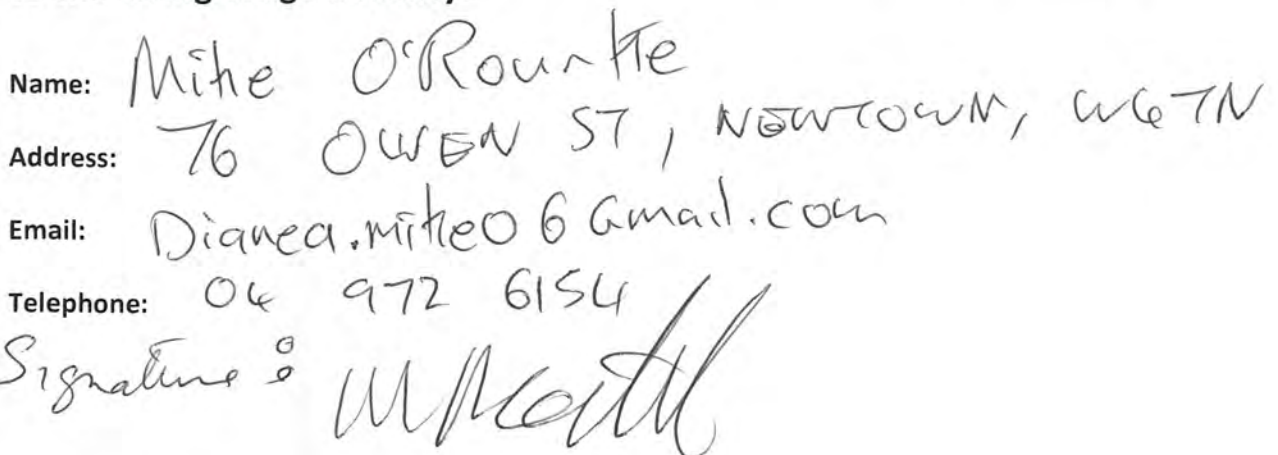 Name: Mike O'Rourke
Address: 76 OWEN ST, NEWTOWN, WGTN
Email: Dianea.mikeo6Gmail.com
Telephone: 04 972 6154
Signature: